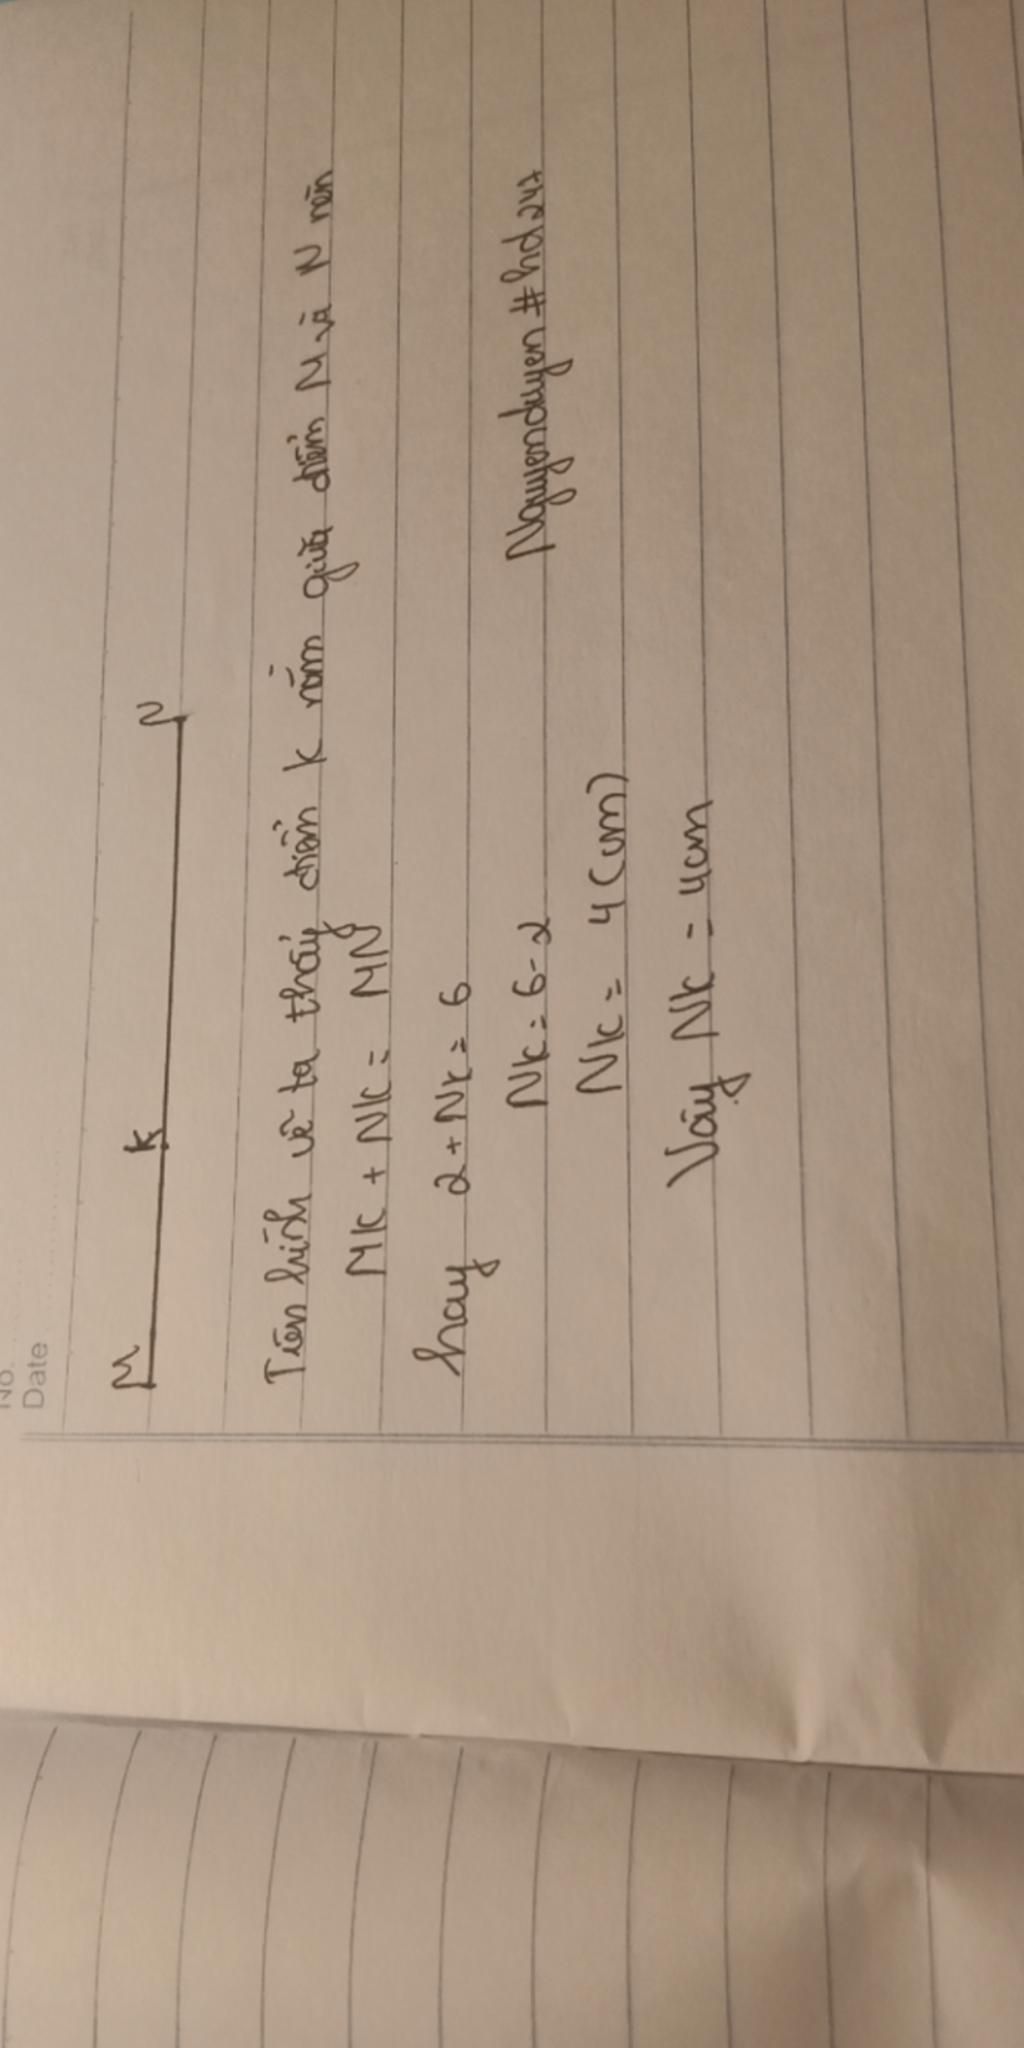 No.
Date
M K N
Trên hình vẽ ta thấy điểm K nằm giữa điểm M và N nên
MK + NK = MN
hay 2 + NK = 6
NK = 6 - 2 Nguyenduyen#hd247
NK = 4 (cm)
Vậy NK = 4cm